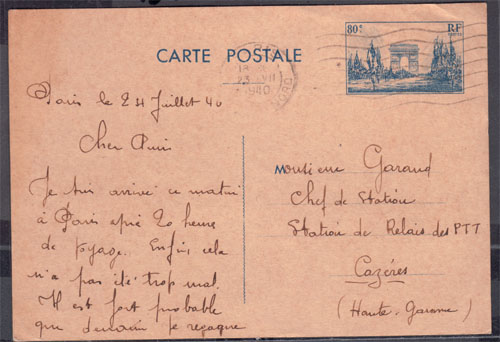 80c RF
CARTE POSTALE
18
23 VII
1940
NORD
Paris le 24 Juillet 40
Cher Amis
Je suis arrivé ce matin
à Paris après 20 heures
de voyage. Enfin, cela
n'a pas été trop mal.
Il est fort probable
que demain je regagne
Monsieur Garaud
Chef de Station
Station de Relais des PTT
Cazères
(Haute-Garonne)